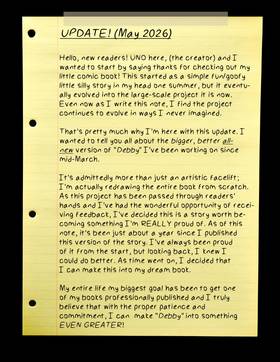 UPDATE! (May 2026)
Hello, new readers! UNO here, (the creator) and I
wanted to start by saying thanks for checking out my
little comic book! This started as a simple fun/goofy
little silly story in my head one summer, but it eventu-
ally evolved into the large-scale project it is now.
Even now as I write this note, I find the project
continues to evolve in ways I never imagined.
That's pretty much why I'm here with this update. I
wanted to tell you all about the bigger, better all-
new version of "Debby" I've been working on since
mid-March.
It's admittedly more than just an artistic facelift;
I'm actually redrawing the entire book from scratch.
As this project has been passed through readers'
hands and I've had the wonderful opportunity of recei-
ving feedback, I've decided this is a story worth be-
coming something I'm REALLY proud of. As of this
note, it's been just about a year since I published
this version of the story. I've always been proud
of it from the start, but looking back, I knew I
could do better. As time went on, I decided that
I can make this into my dream book.
My entire life my biggest goal has been to get one
of my books professionally published and I truly
believe that with the proper patience and
commitment, I can make "Debby" into something
EVEN GREATER!